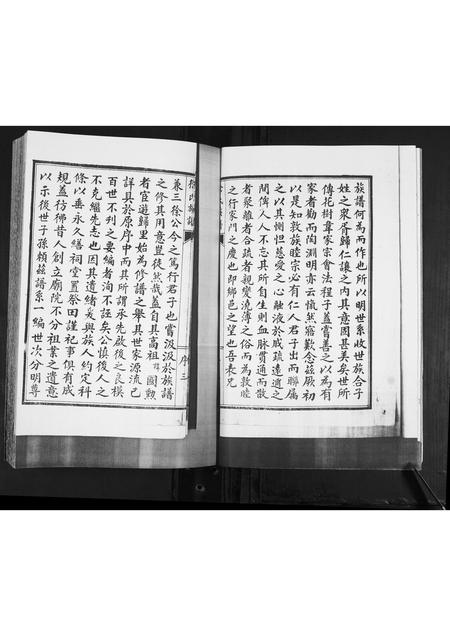 族譜何為而作也所以明世系收世族合子
姓之眾胥歸仁讓之內其意固甚美矣世所
傳花樹韋家宗會法程子蓋嘗善之以為有
家者勸而陶淵明亦云慨然寤歎念茲厥初
以是知敦族睦宗必有仁人君子出而聯屬
之以其惻怛慈愛之心融液於戚疏遠邇之
間俾人人不忘其所自生則血脈貫通而散
者聚離者合疏者親變澆薄之俗而為敦睦
之行家門之慶也即鄉邑之望也吾表兄
徐氏
序三
菉三徐公今之篤行君子也嘗汲汲於族譜
之修其用意豈徒然哉蓋自其高祖 國勳
者宦遊歸里始為修譜之舉其世家源流已
詳具於原序中而其所謂承先啟後之良模
百世不刊之要編者洵不誣矣公慎後人之
不克繼先志也因其遺緒爰與族人約定科
條以垂永久繕祠堂置祭田謹祀事俱有成
規蓋彷彿昔人創立廟院不分祖業之遺意
以示後世子孫賴茲譜系一編世次分明尊